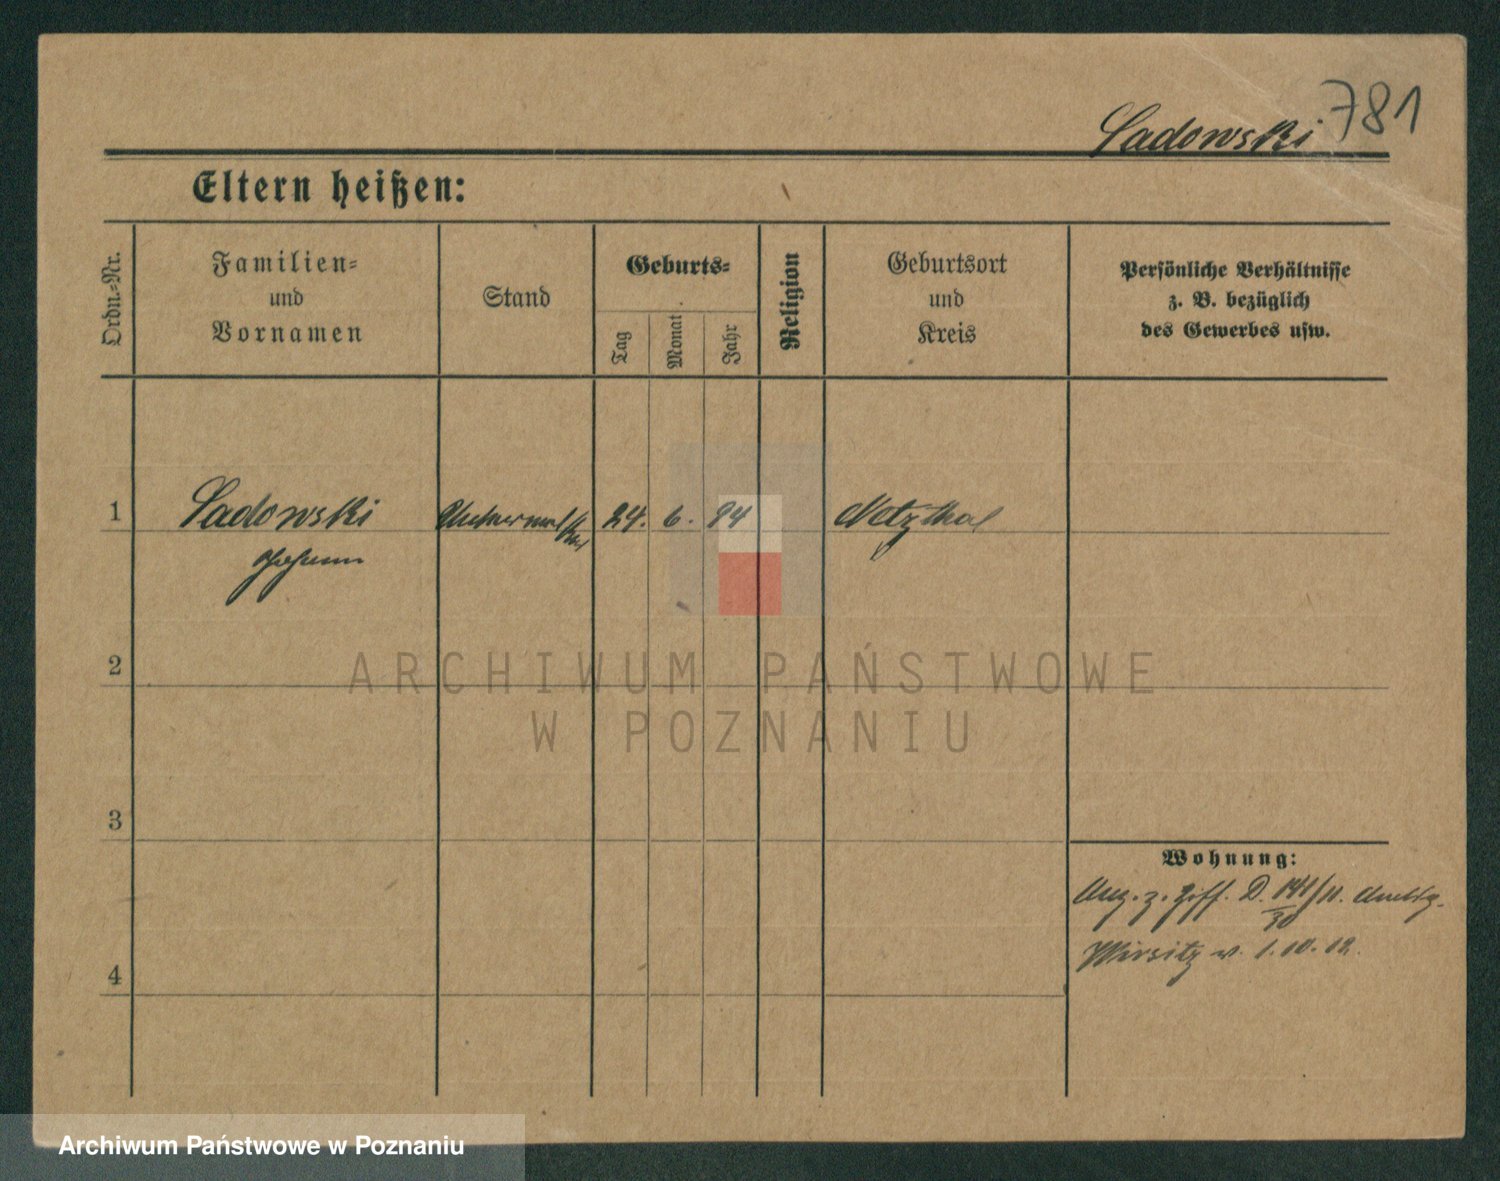 781
Sadowski
Eltern heißen:
Ordn.-Nr.
Familien-
und
Vornamen
Stand
Geburts-
Tag
Monat
Jahr
Religion
Geburtsort
und
Kreis
Persönliche Verhältnisse
z. B. bezüglich
des Gewerbes usw.
1
Sadowski
24. 6. 94
Netzthal
Johann
2
ARCHIWUM PAŃSTWOWE
W POZNANIU
3
Wohnung:
Ang. z. Ziff. D.
Wirsitz v. 1. 10. 12.
4
Archiwum Państwowe w Poznaniu